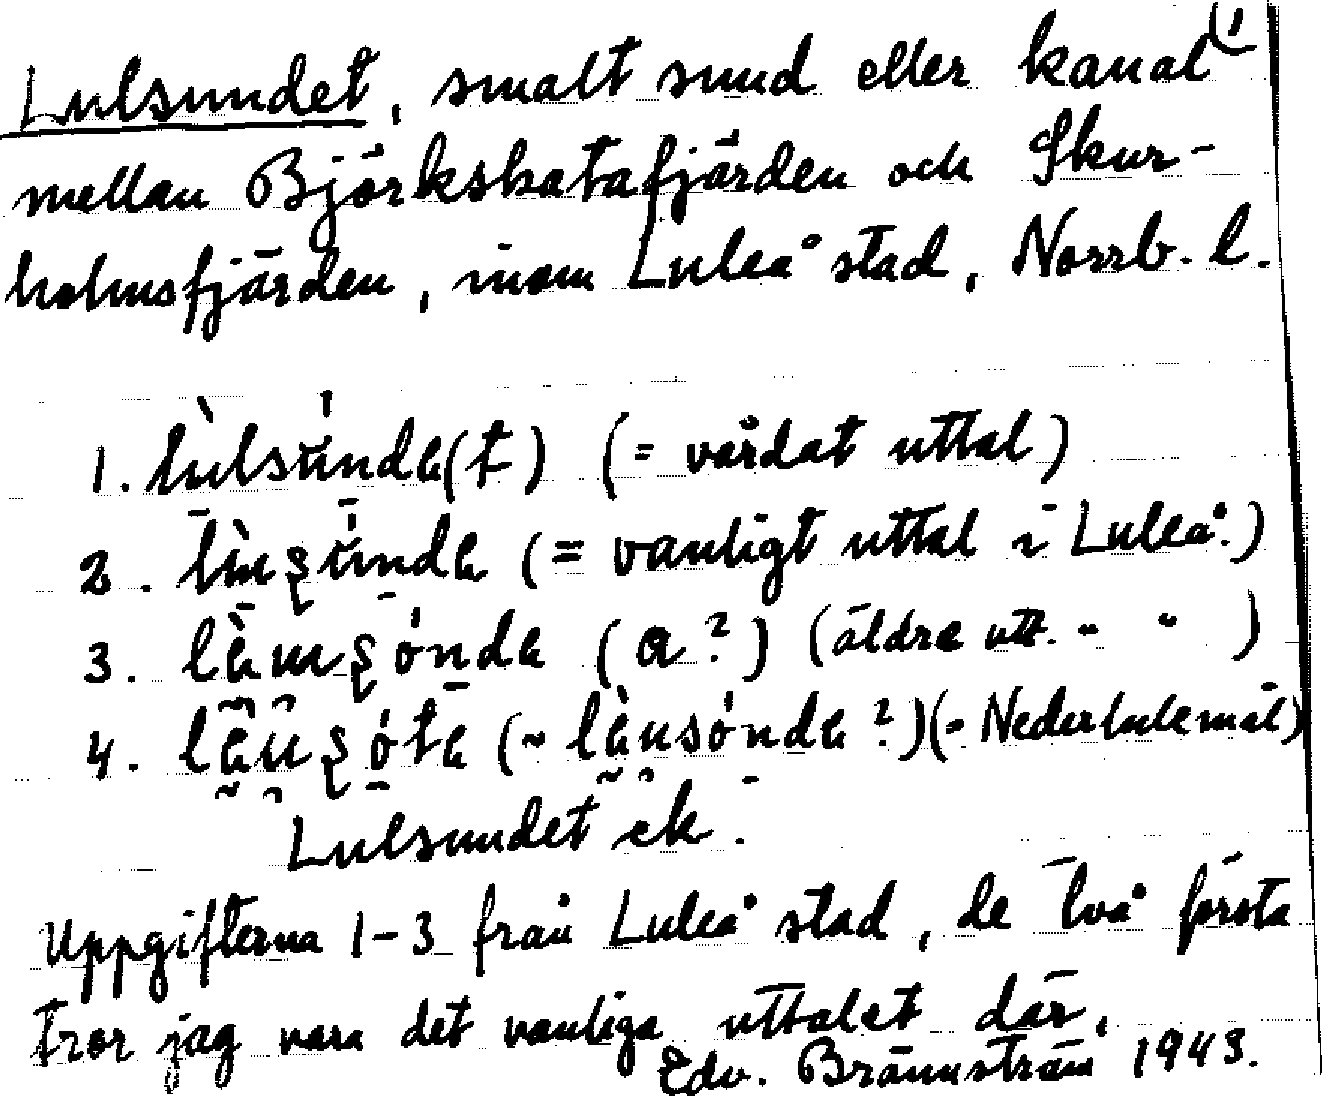 Lulsundet, smalt sund eller kanal (1
mellan Björkskatafjärden och Skur-
holmsfjärden, inom Luleå stad, Norrb. l.
1. lùlsúndə(t) (= vårdat uttal)
2. (= vanligt uttal i Luleå.)
3. (a?) (äldre utt. - " )
4. (~ ?) (- Nederlulemål)
Lulsundet ek.
Uppgifterna 1-3 från Luleå stad, de två första
tror jag vara det vanliga uttalet där.
Edv. Brännström 1943.